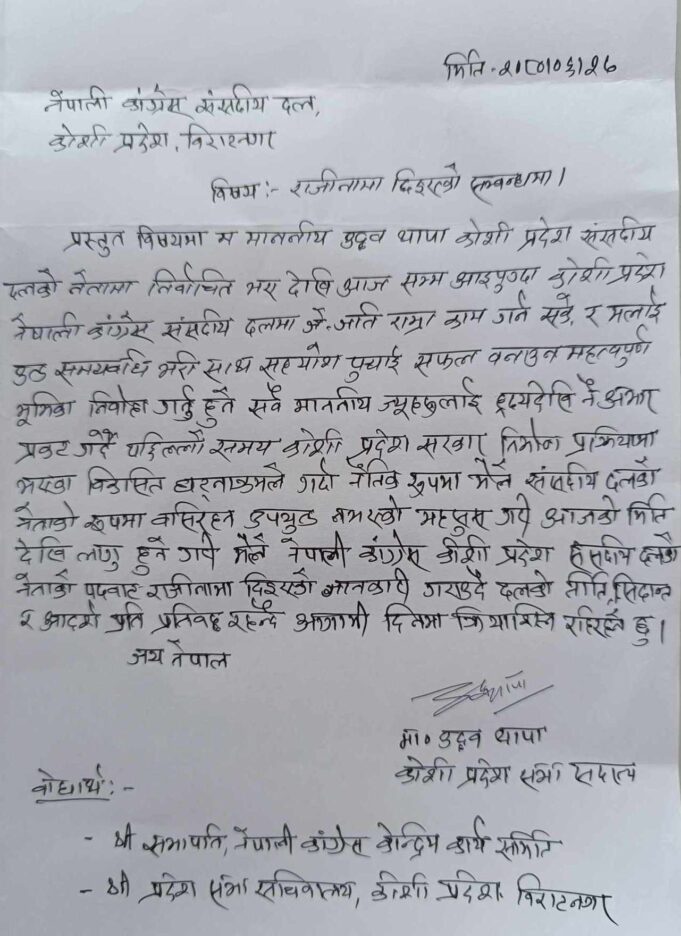 मिति-२०८०।०६।२७
नेपाली कांग्रेस संसदीय दल,
कोशी प्रदेश, विराटनगर
विषय:- राजीनामा दिइएको सम्बन्धमा।
प्रस्तुत विषयमा म माननीय उद्धव थापा कोशी प्रदेश संसदीय
दलको नेतामा निर्वाचित भए देखि आज सम्म आइपुग्दा कोशी प्रदेश
नेपाली कांग्रेस संसदीय दलमा जे-जति राम्रा काम गर्न सकें, र मलाई
समयावधि भरी साथ सहयोग पुर्‍याई सफल बनाउन महत्वपुर्ण
भूमिका निर्वाह गर्नु हुने सबै माननीय ज्यूहरुलाई ह्रदयदेखि नै आभार
प्रकट गर्दै पछिल्लो समय कोशी प्रदेश सरकार निर्माण प्रक्रियामा
भएका विकासित घटनाक्रमले गर्दा नैतिक रुपमा मैले संसदीय दलको
नेताको रुपमा बसिरहन उपयुक्त नभएको महसुस गरी आजको मिति
देखि लागु हुने गरी मैले नेपाली कांग्रेस कोशी प्रदेश संसदीय दलको
नेताको पदबाट राजीनामा दिइएको जानकारी गराउदै दलको निति, सिद्धान्त
र आदर्श प्रति प्रतिबद्ध रहन्दै आगामी दिनमा क्रियाशिल रहिरहने छु।
जय नेपाल
मा० उद्धव थापा
कोशी प्रदेश सभा सदस्य
बोधार्थ:-
- श्री सभापति, नेपाली कांग्रेस केन्द्रिय कार्य समिति
- श्री प्रदेश सभा सचिवालय, कोशी प्रदेश विराटनगर